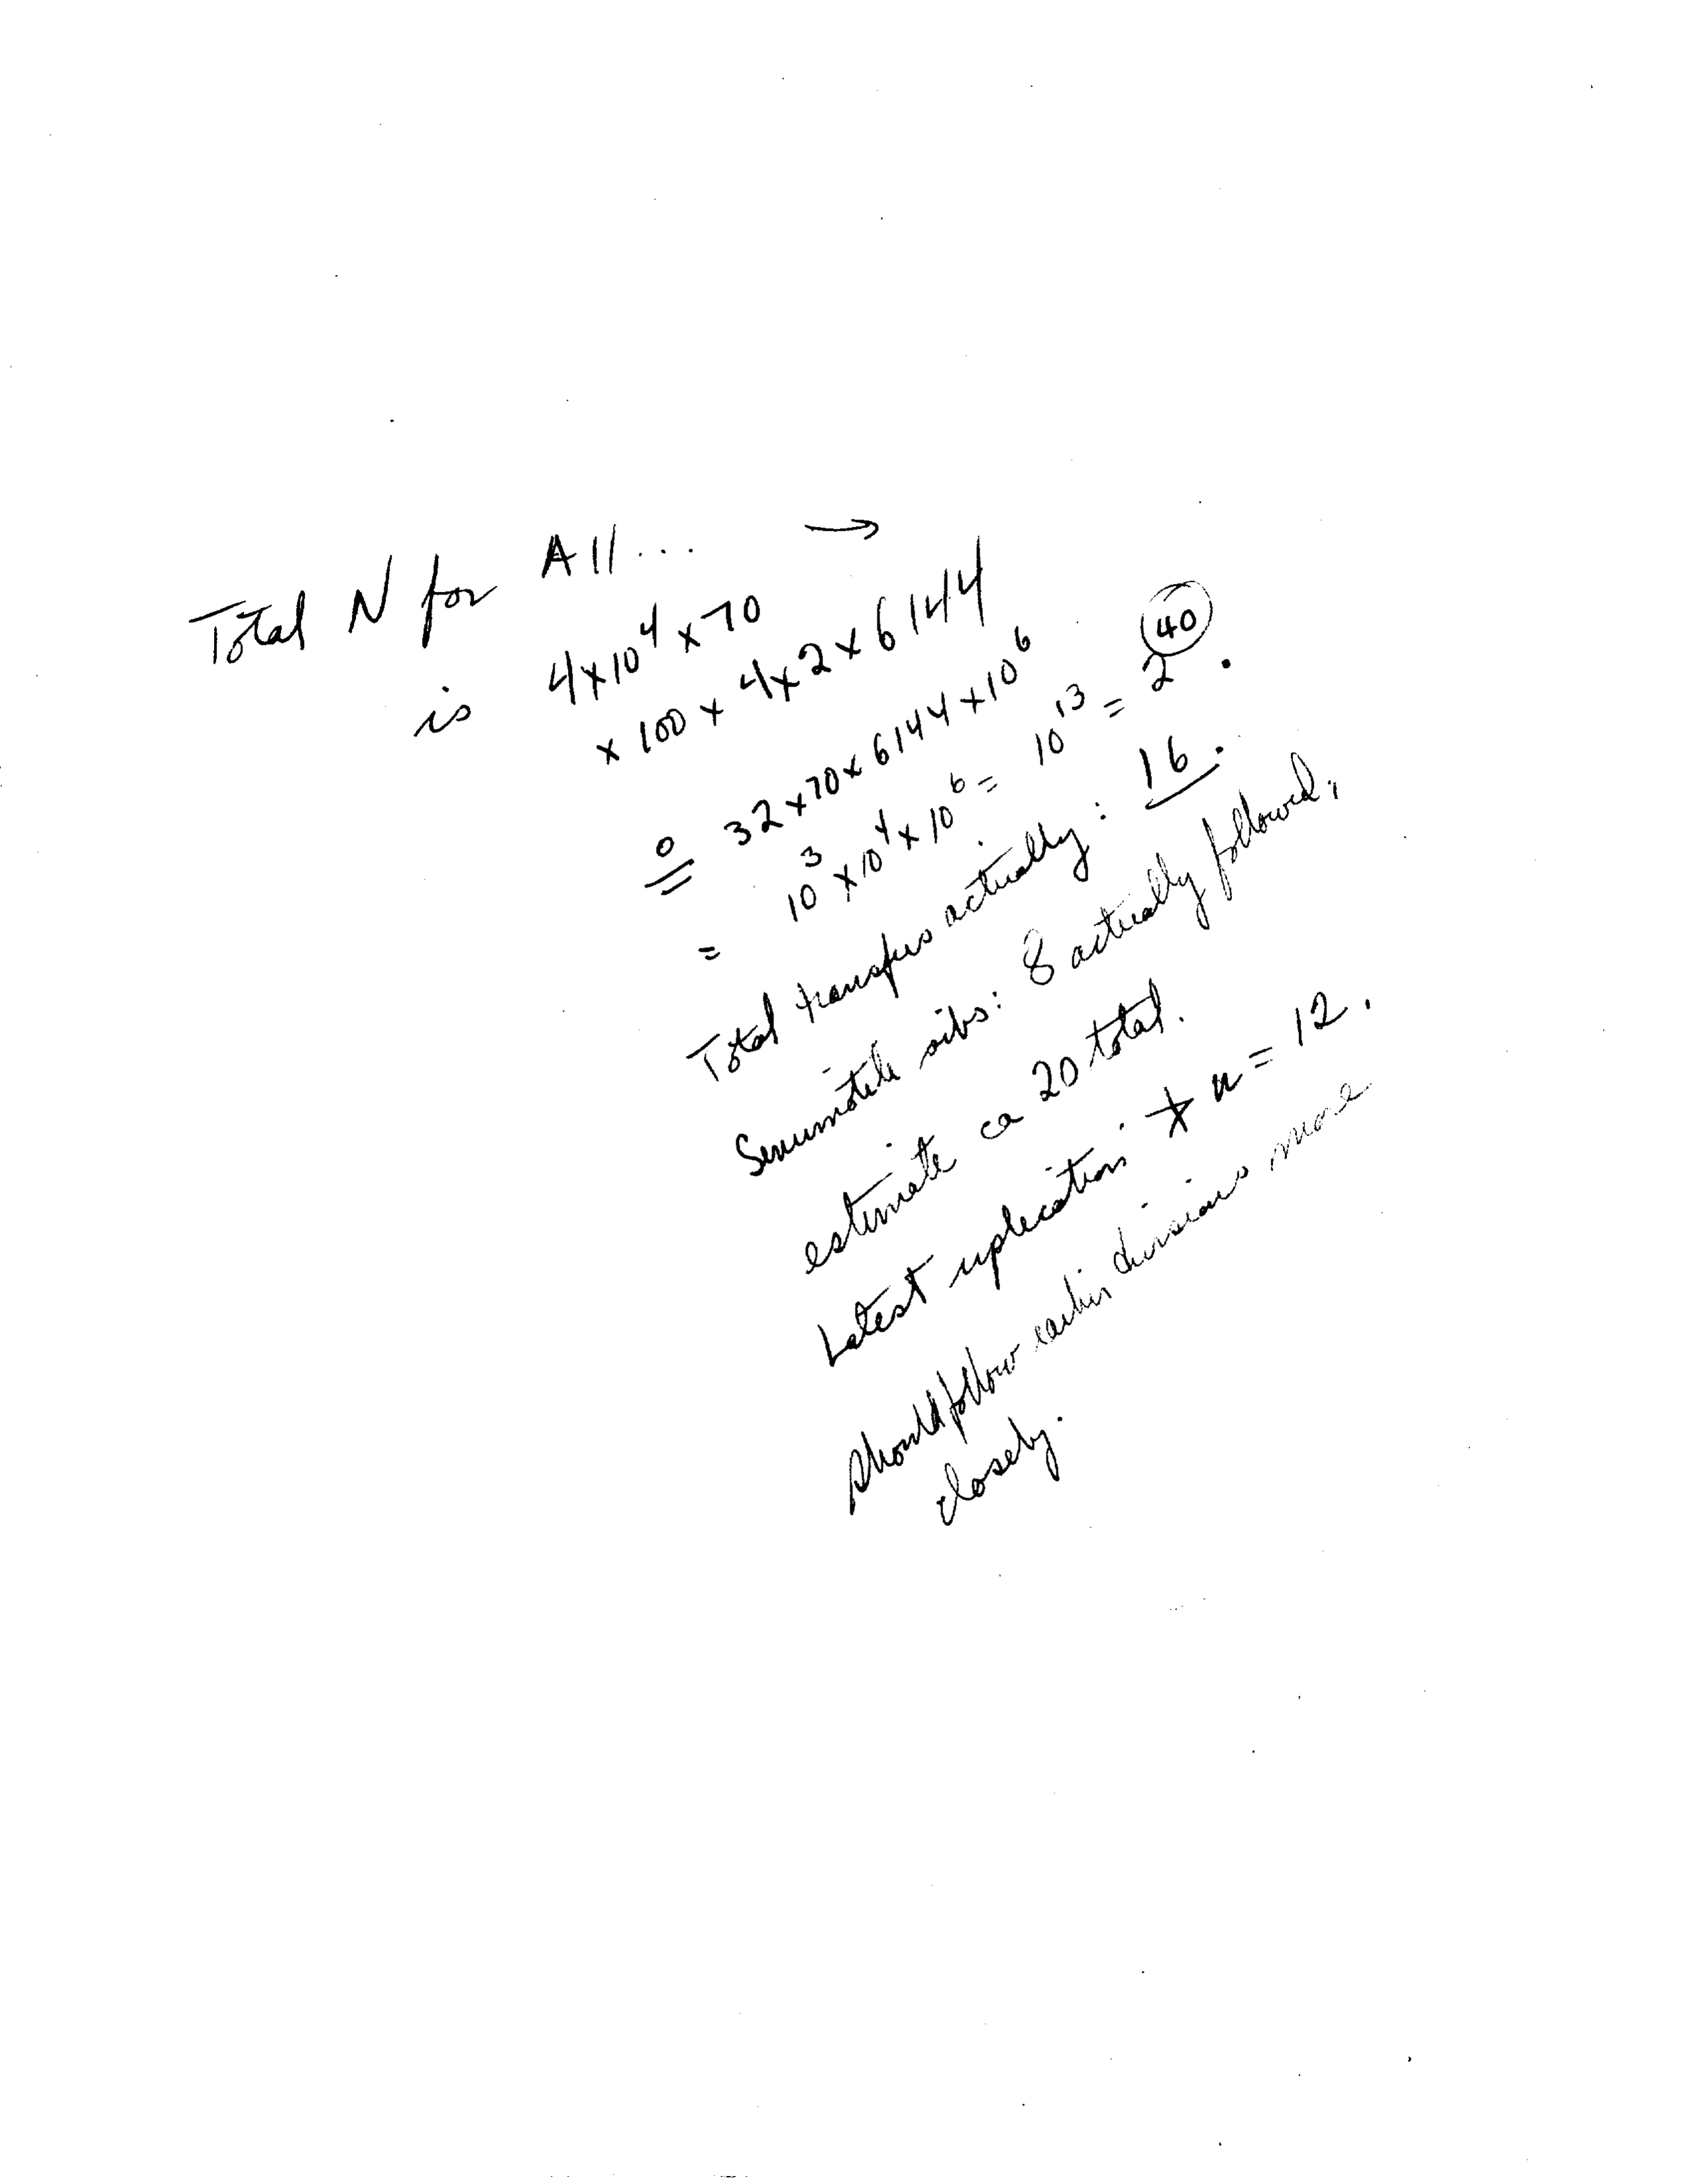 Total N for All... →
is 4×10⁴×70
×100×4×2×6144
≗ 32×70×6144×10⁶
= 10³×10⁴×10⁶ = 10¹³ = 2⁴⁰.
Total transfers actually: 16.
Semimotile sibs: 8 actually followed,
estimate ca 20 total.
Latest replication: * n = 12.
should follow earlier divisions more
closely.